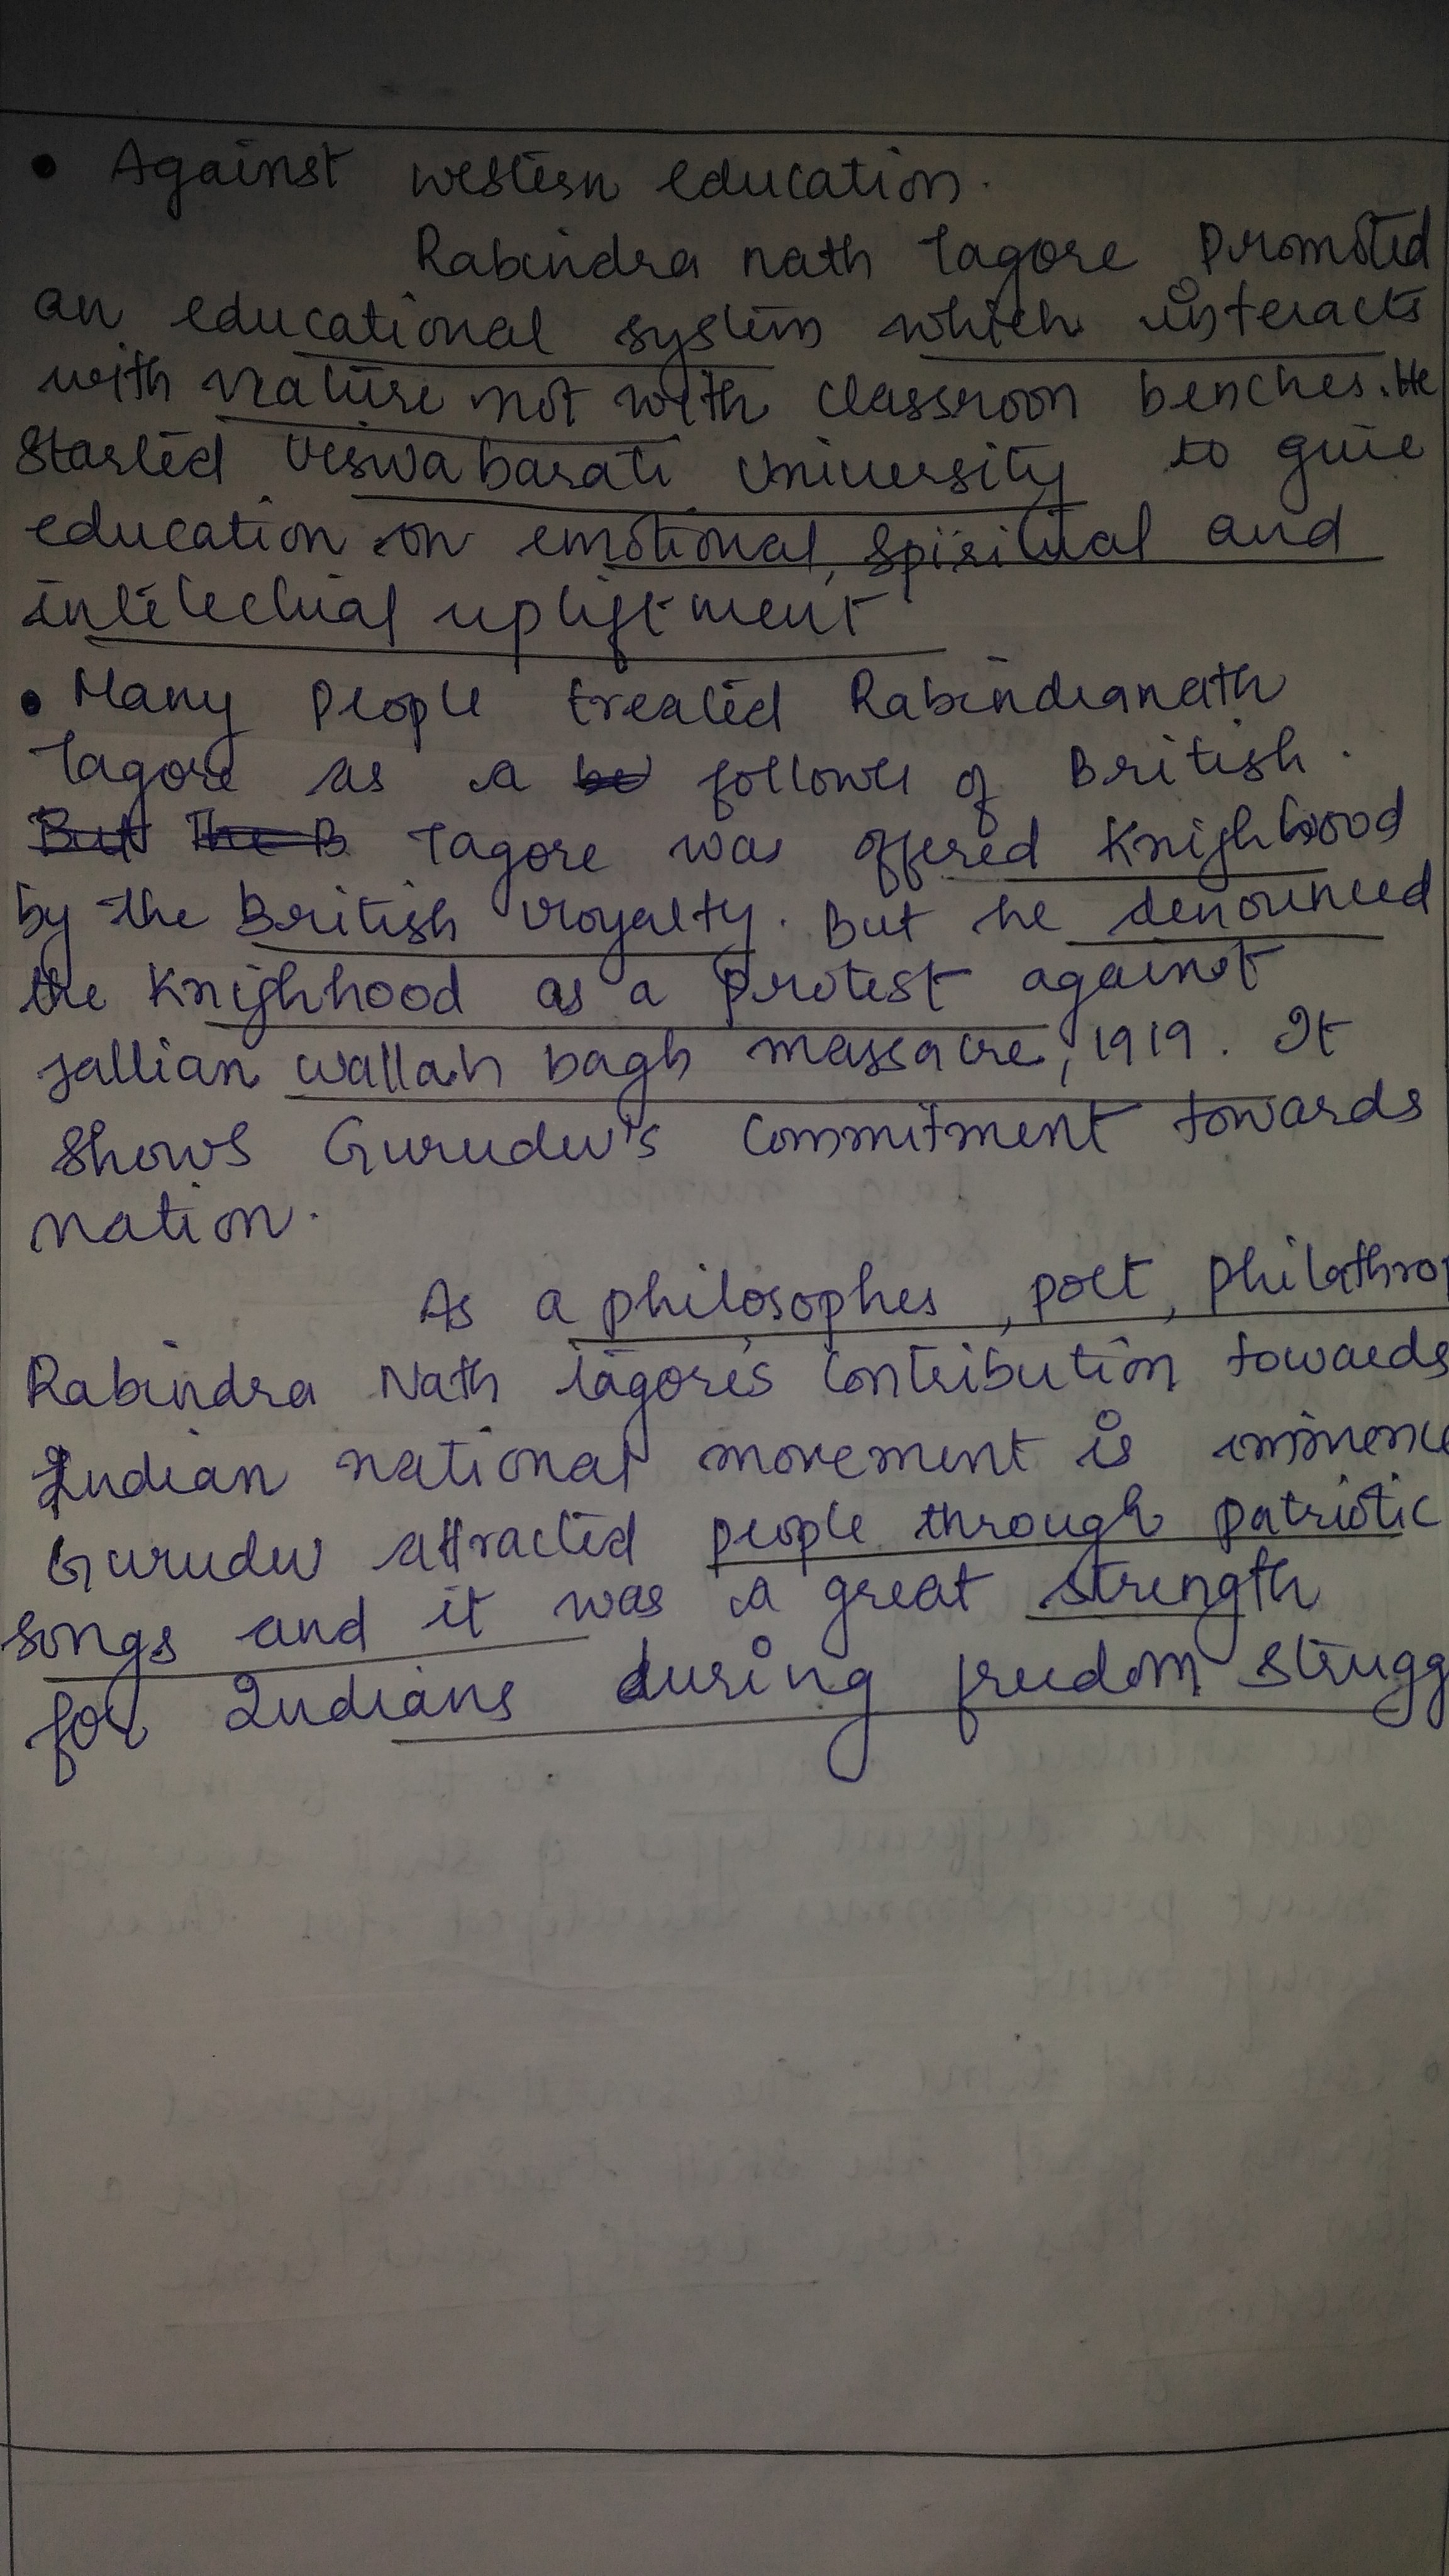 • Against western education.
Rabindra nath Tagore promoted
an educational system which interacts
with nature not with classroon benches. He
Started Viswabarati University to give
education on emotional, spiritual and
intelectual upliftment
• Many people treated Rabindranath
Tagore as a be follower of British.
But The B Tagore was offered Knighhood
by the British royalty. But he denounced
the Knighhood as a protest against
Jallian wallah bagh massacre, 1919. It
shows Gurudev's commitment towards
nation.
As a philosopher, poet, philathro
Rabindra Nath Tagore's contribution towards
Indian national movement is imminence
Gurudev attracted people through patriotic
songs and it was a great strength
for Indians during freedom strugg